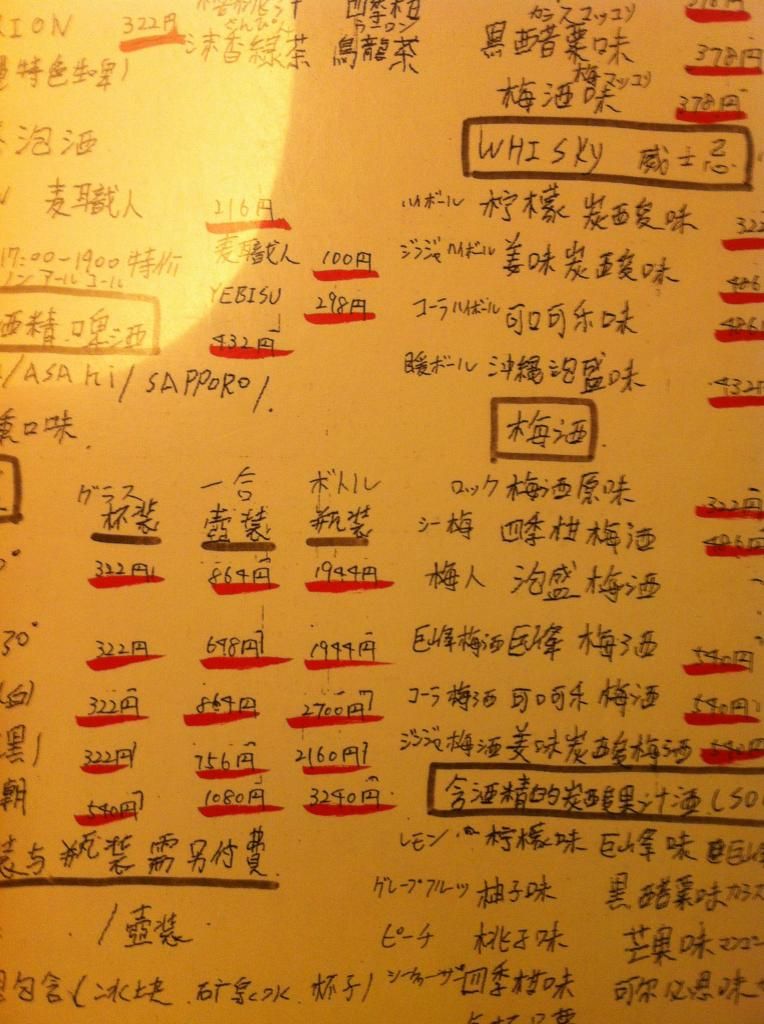 322円
沫香線茶 烏龍茶
特色
泡酒
麦職人 216円
17:00-1900 特价 麦職人 100円
YEBISU 298円
酒精啤酒 432円
/ASAHi/SAPPORO/.
口味
グラス 一合 ボトル
杯装 壺装 瓶装
322円 864円 1944円
30° 322円 648円 1944円
322円 864円 2700円
322円 756円 2160円
540円 1080円 3240円
与 瓶装 需另付費
/壺装
包含(冰块.矿泉水.杯子)
カシスマッコリ
黒醋栗味 378円
梅マッコリ
梅酒味 378円
WHISKY 威士忌
ハイボール 柠檬 炭酸味 322
ジンジャーハイボール 姜味炭酸味 486
コーラハイボール 可口可乐味 486
暖ボール 沖縄泡盛味 432
梅酒
ロック 梅酒原味 322円
シー梅 四季柑梅酒 486円
梅人 泡盛梅酒
巨峰梅酒 巨峰 梅酒 540円
コーラ梅酒 可口可乐 梅酒 540円
ジンジャ梅酒 姜味炭酸梅酒 540円
含酒精的炭酸果汁酒
レモン 柠檬味 巨峰味
グレープフルーツ 柚子味 黒醋栗味カシス
ピーチ 桃子味 芒果味マンゴー
シークァーサー 四季柑味 可尔必思味